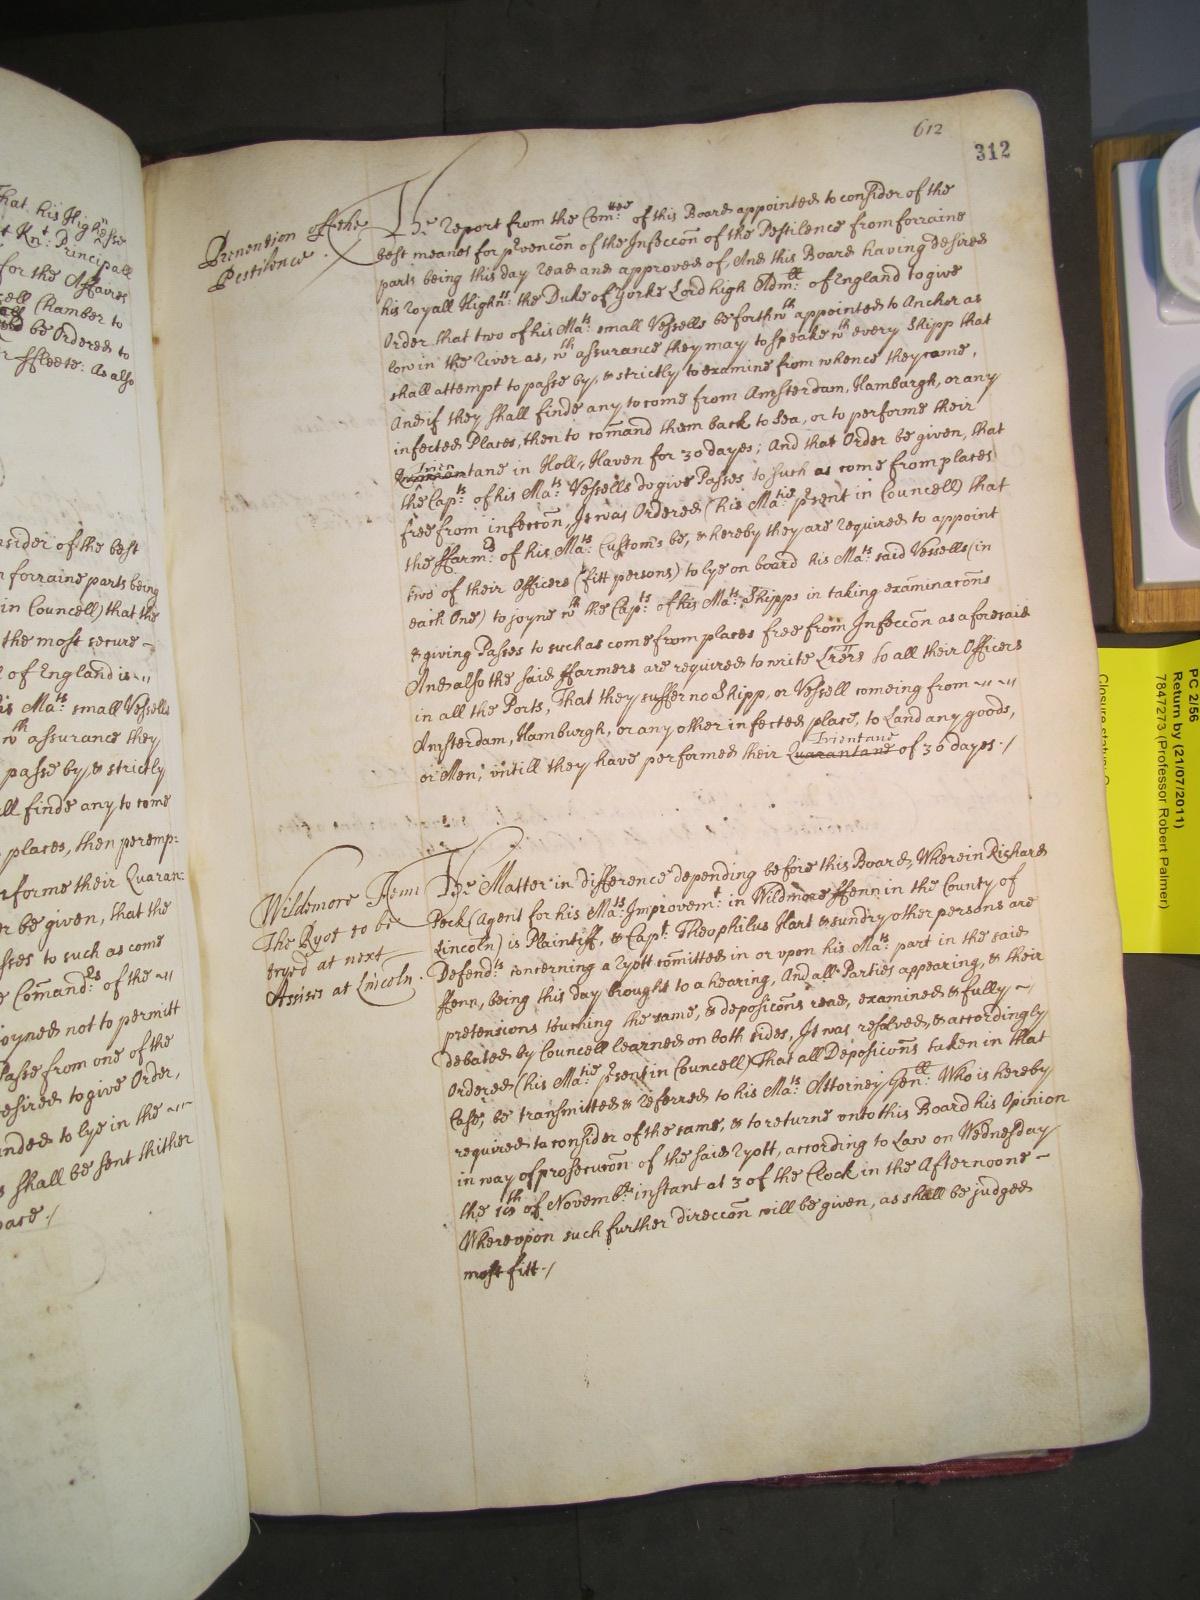 612
312
Prevention of the
Pestilence.
The Report from the Com:ttee of this Board appointed to consider of the
best meanes for p'vencõn of the Infeccõn of the Pestilence from forraine
parts being this day read and approved of, And this Board having desired
his Royall Highn:ss the Duke of Yorke Lord high Adm:ll of England to give
Order that two of his Ma:ts small Vessells be forthwth appointed to Anchor as
low in the River as, wth assurance they may to speake wth every Shipp that
shall attempt to passe by, & strictly to examine from whence they came,
And if they shall finde any to come from Amsterdam, Hamburgh, or any
infected Places, then to cõmand them back to Sea, or to performe their
Trientane in Holl,, Haven for 30 dayes; And that Order be given, that
the Cap:ts of his Ma:ts Vessells do give Passes to such as come from places
free from infeccõn, It was Ordered (his Ma:tie p'sent in Councell) that
the ffarm:rs of his Ma:ts Customs be, & hereby they are required to appoint
two of their Officers (fitt persons) to lye on board his Ma:ts said Vessells (in
each One) to joyne wth the Cap:ts of his Ma:ts Shipps in taking examinacõns
& giving Passes to such as come from places free from Infeccõn as aforesaid
And also the said ffarmers are required to write Lrẽs to all their Officers
in all the Ports, That they suffer no Shipp, or Vessell comeing from
Amsterdam, Hamburgh, or any other infected place, to Land any goods,
or Men, untill they have performed their Quarantane Trientane of 30 dayes./
Wildemore Fenn
The Ryot to be
tryed at next
Assises at Lincoln.
The Matter in difference depending before this Board, Wherein Richard
Peck (Agent for his Ma:ts Improvem:t in Wildmore ffenn in the County of
Lincoln) is Plaintiff, & Cap:t Theophilus Hart & sundry other persons are
Defend:ts concerning a Ryott cõmitted in or upon his Ma:ts part in the said
ffenn, being this day brought to a hearing, And all Parties appearing, & their
pretensions touching the same, & deposicõns read, examined & fully
debated by Councell learned on both sides, It was resolved, & accordingly
Ordered (his Ma:tie p'sent in Councell) That all Deposicõns taken in that
Case, be transmitted & Referred to his Ma:ts Attorney Gen:ll Who is hereby
required to consider of the same, & to returne unto this Board his Opinion
in way of prosecucõn of the said Ryott, according to Law on Wednesday
the of Novemb:r instant at 3 of the Clock in the Afternoone
Whereupon such further direccõn will be given, as shall be judged
most fitt./
hat his Highnesse
Kn:t Principall
for the Affaires
Chamber to
be Ordered to
ffleete: As also
nsider of the best
forraine parts being
in Councell) that the
the most secure
of England is
his Ma:ts small Vessells
wth assurance they
passe by, & strictly
ll finde any to come
places, then peremp:
rforme their Quaran:
r be given, that the
sses to such as come
e Comand:rs of the
oyned not to permitt
Passe from one of the
esired to give Order,
nded to lye in the
s shall be sent thither
PC 2/56
Return by (21/07/2011)
7847273 (Professor Robert Palmer)